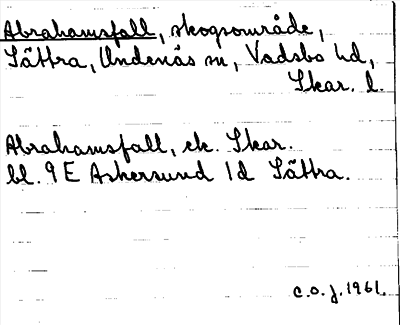 Abrahamsfall, skogsområde,
Sättra, Undenäs sn, Vadsbo hd,
Skar. l.
Abrahamsfall, ek. Skar.
bl. 9 E Askersund 1d Sättra.
c.o.j. 1961.